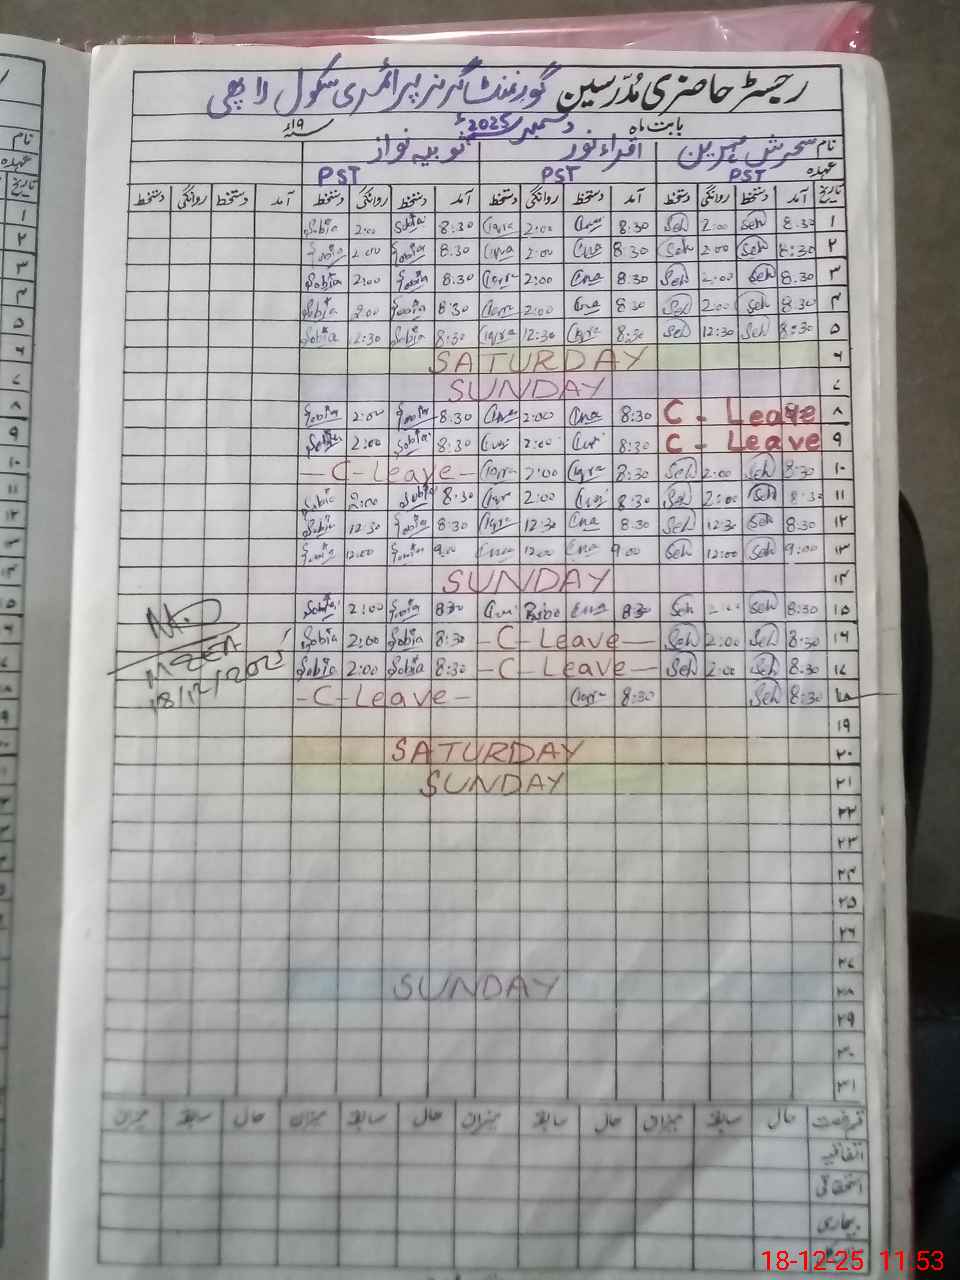 رجسٹر حاضری مدرسین گورنمنٹ گرلز پرائمری سکول
بابت ماہ دسمبر 2025ء سنہ ۱۹ء
نام سحرش اقراء نور ثوبیہ نواز
عہدہ PST PST PST
تاریخ آمد دستخط روانگی دستخط آمد دستخط روانگی دستخط آمد دستخط روانگی دستخط آمد دستخط روانگی دستخط
۱ 8:30 Seh 2:00 Seh 8:30 2:00 Iqra 8:30 Sobia 2:00 Sobia
۲ 8:30 Seh 2:00 Seh 8:30 2:00 Iqra 8:30 Sobia 2:00 Sobia
۳ 8:30 Seh 2:00 Seh 8:30 2:00 Iqra 8:30 Sobia 2:00 Sobia
۴ 8:30 Seh 2:00 Seh 8:30 2:00 Iqra 8:30 Sobia 2:00 Sobia
۵ 8:30 Seh 12:30 Seh 8:30 Iqra 12:30 Iqra 8:30 Sobia 12:30 Sobia
۶ SATURDAY
۷ SUNDAY
۸ C - Leave 8:30 2:00 8:30 Sobia 2:00 Sobia
۹ C - Leave 8:30 2:00 8:30 Sobia 2:00 Sobia
۱۰ 8:30 Seh 2:00 Seh 8:30 Iqra 2:00 Iqra - C - Leave -
۱۱ 8:30 Seh 2:00 Seh 8:30 2:00 Iqra 8:30 Sobia 2:00 Sobia
۱۲ 8:30 Seh 12:30 Seh 8:30 12:30 Iqra 8:30 Sobia 12:30 Sobia
۱۳ 9:00 Seh 12:00 Seh 9:00 12:00 9:00 Sobia 12:00 Sobia
۱۴ SUNDAY
۱۵ 8:30 Seh 2:00 Seh 8:30 8:30 Sobia 2:00 Sobia
۱۶ 8:30 Seh 2:00 Seh - C - Leave - 8:30 Sobia 2:00 Sobia
۱۷ 8:30 Seh 2:00 Seh - C - Leave - 8:30 Sobia 2:00 Sobia
۱۸ 8:30 Seh 8:30 Iqra - C - Leave -
MEEA
18/12/2025
۱۹
۲۰ SATURDAY
۲۱ SUNDAY
۲۲
۲۳
۲۴
۲۵
۲۶
۲۷
۲۸ SUNDAY
۲۹
۳۰
۳۱
فرصت حال سابقہ میزان حال سابقہ میزان حال سابقہ میزان حال سابقہ میزان
اتفاقیہ
استحقاقی
بیماری
18-12-25 11:53